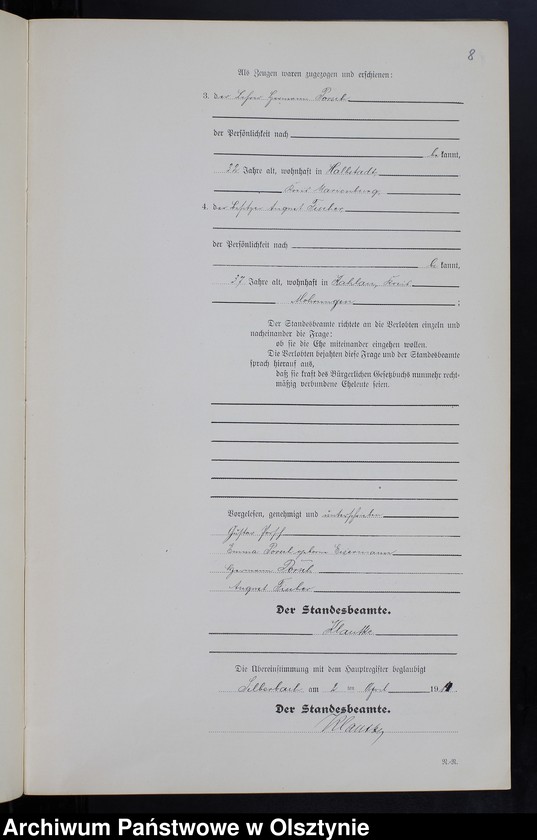 8
Als Zeugen waren zugezogen und erschienen:
3. der Lehrer Hermann Porsch
der Persönlichkeit nach
be kannt,
22 Jahre alt, wohnhaft in Hallstadt,
Kreis Marienburg
4. der Besitzer August Fischer
der Persönlichkeit nach
be kannt,
37 Jahre alt, wohnhaft in Kahlau, Kreis
Mohrungen ;
Der Standesbeamte richtete an die Verlobten einzeln und
nacheinander die Frage:
ob sie die Ehe miteinander eingehen wollen.
Die Verlobten bejahten diese Frage und der Standesbeamte
sprach hierauf aus,
daß sie kraft des Bürgerlichen Gesetzbuchs nunmehr recht-
mäßig verbundene Eheleute seien.
Vorgelesen, genehmigt und unterschrieben
Gustav Porsch
Emma Porsch geborene
Hermann Porsch
August Fischer
Der Standesbeamte.
Die Übereinstimmung mit dem Hauptregister beglaubigt
Silberbach am 2 ten April 19
Der Standesbeamte.
N.-R.
Archiwum Państwowe w Olsztynie